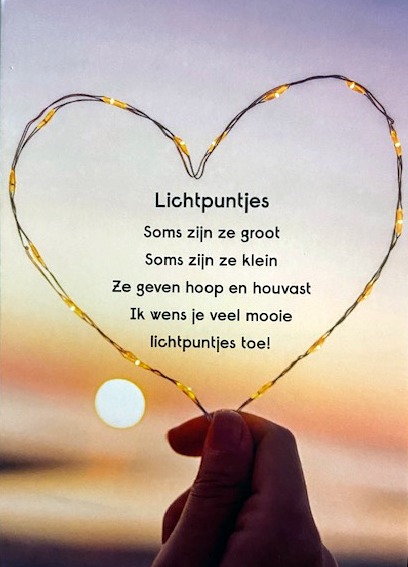 Lichtpuntjes
Soms zijn ze groot
Soms zijn ze klein
Ze geven hoop en houvast
Ik wens je veel mooie
lichtpuntjes toe!